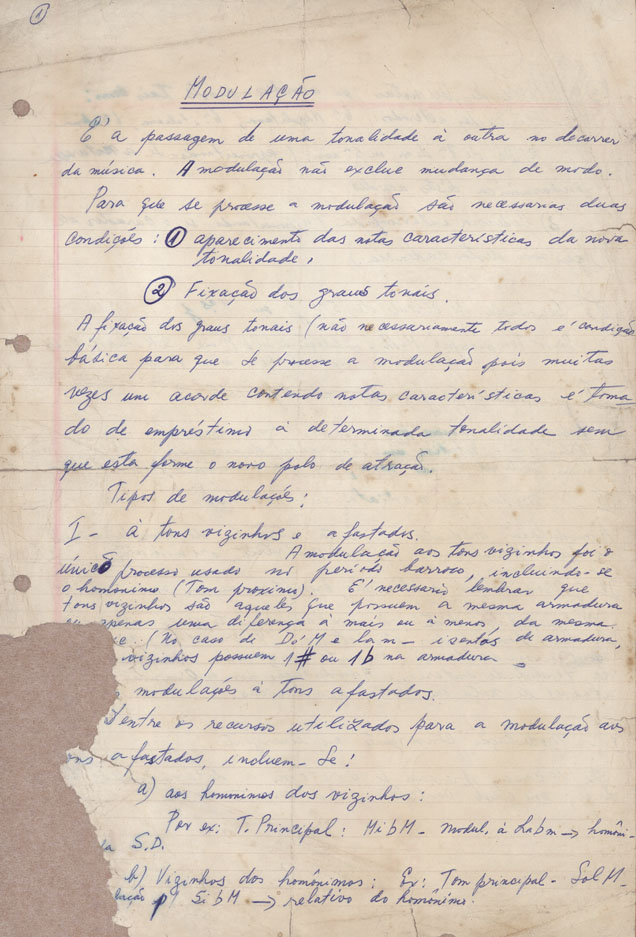 1
MODULAÇÃO
É a passagem de uma tonalidade à outra no decorrer
da música. A modulação não exclue mudança de modo.
Para que se processe a modulação são necessarias duas
condições: 1 aparecimento das notas características da nova
tonalidade,
2 Fixação dos graus tonais.
A fixação dos graus tonais (não necessariamente todos é condição
básica para que se processe a modulação pois muitas
vezes um acorde contendo notas características é toma
do de empréstimo à determinada tonalidade sem
que esta forme o novo polo de atração.
Tipos de modulações:
I - à tons vizinhos e afastados.
A modulação aos tons vizinhos foi o
único processo usado no período barroco, incluindo-se
o homônimo (Tom proximo). É necessario lembrar que
tons vizinhos são aqueles que possuem a mesma armadura
ou apenas uma diferença à mais ou à menos, da mesma.
(No caso de Dó M e lá m - isentos de armadura,
vizinhos possuem 1# ou 1b na armadura.
modulações à tons afastados.
Dentre os recursos utilizados para a modulação aos
ons afastados, incluem-se:
a) aos homonimos dos vizinhos:
Por ex: T. Principal: Mi b M - modul. à Lab m → homôni-
da S.D.
b) Vizinhos dos homônimos: Ex: Tom principal - Sol M -
lação p/ Si b M → relativo do homônimo.